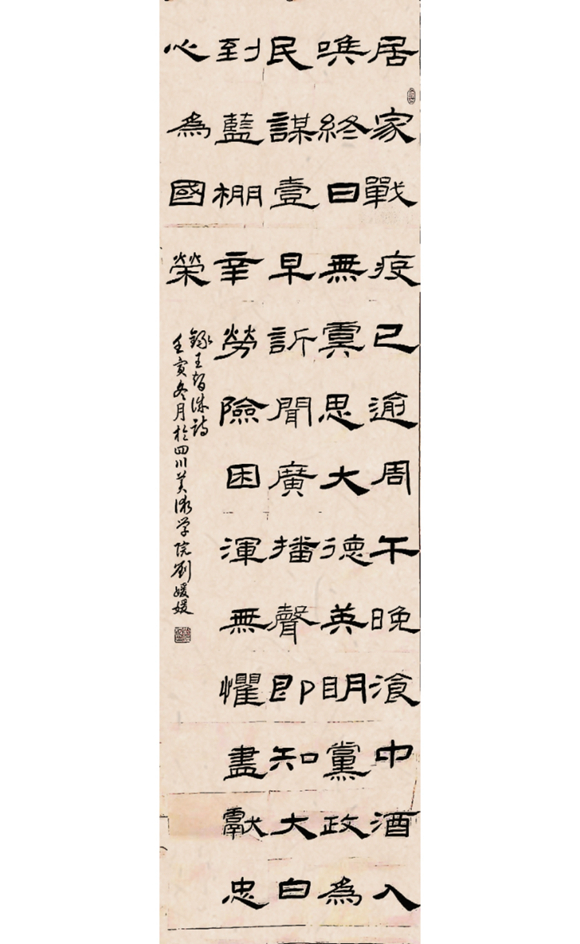 居家戰疫已逾周午晚飡中酒入
喉終日無虞思大德英明黨政為
民謀壹早訢聞廣播聲即知大白
到藍棚辛勞險困渾無懼盡獻忠
心為國榮
録王智洙詩
壬寅冬月於四川美術学院劉媛媛